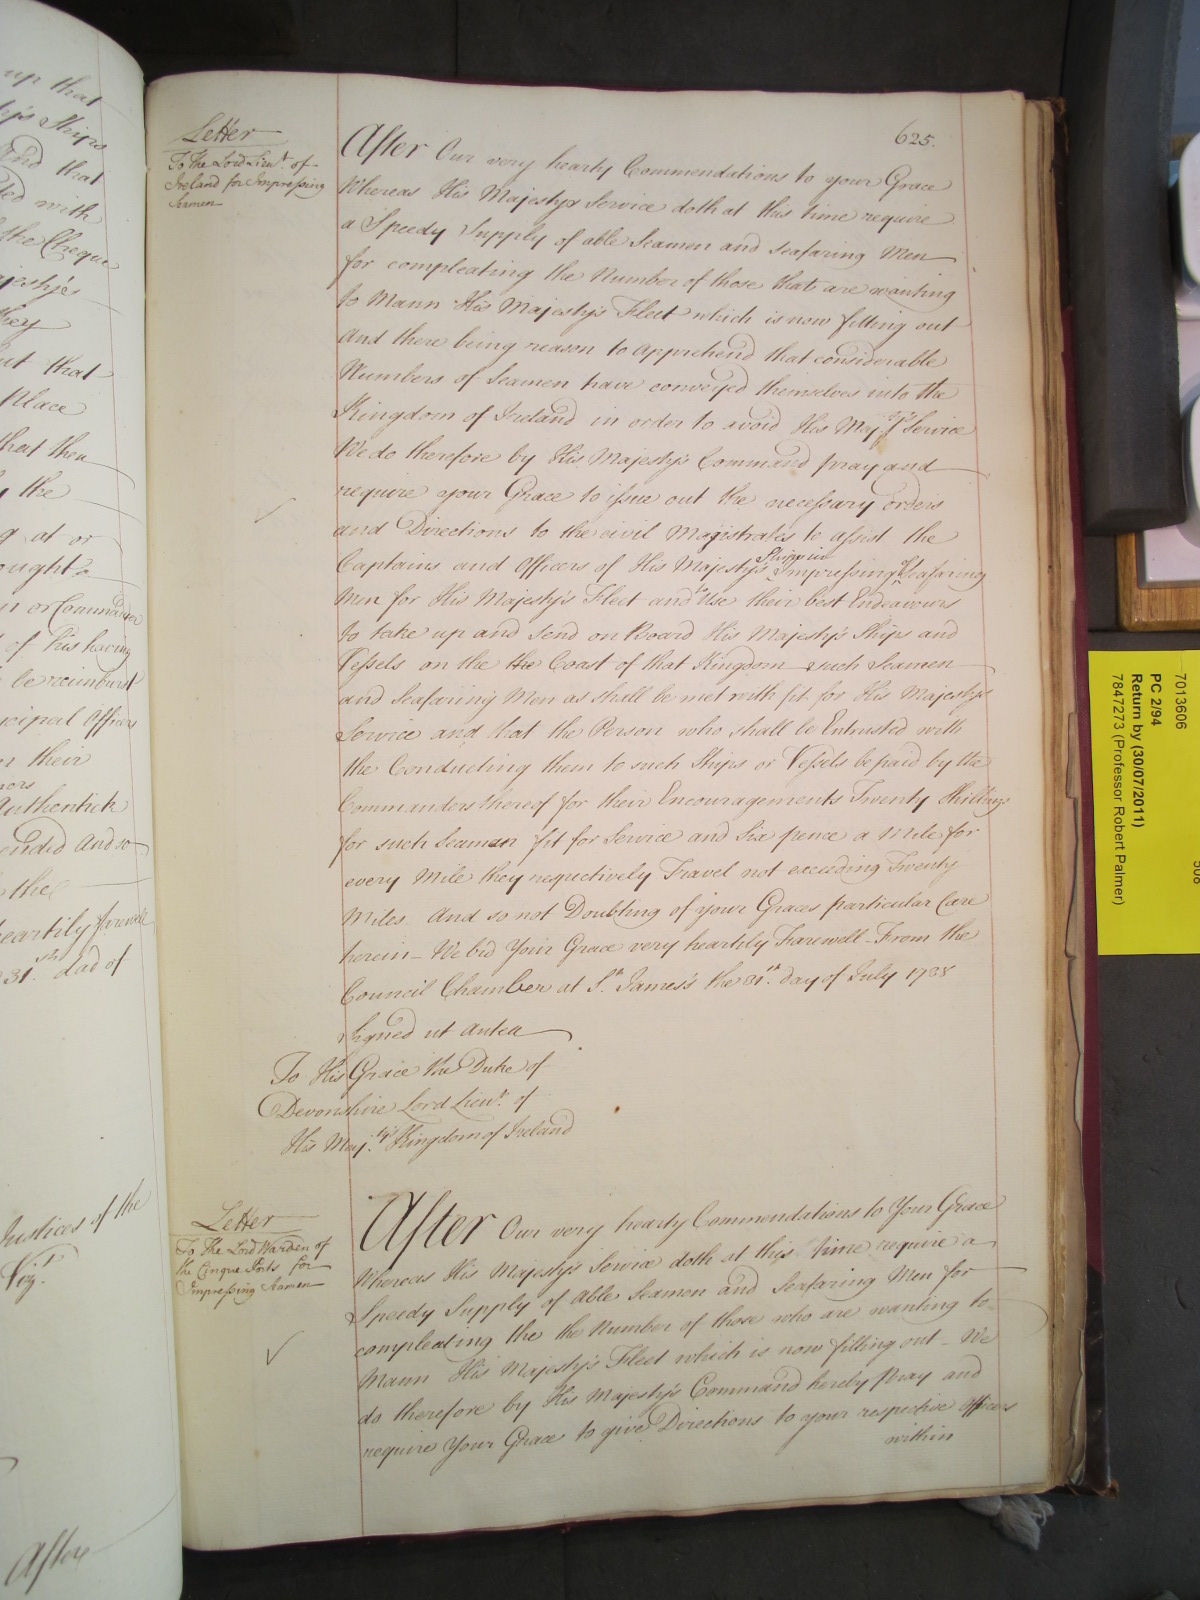 up that
Ships
And that
ted with
the Cheque
ajesty's
they
ut that
Place
that then
the
g at or
ought
or Commander
of his having
be reimburst
ncipal Officers
n their
Authentick
ended And so
the
eartily farewell
31st day of
Justices of the
Vizt.
After
625.
Letter
To the Lord Lieut. of
Ireland for Impressing
Seamen
After Our very hearty Commendations to your Grace
Whereas His Majestys Service doth at this time require
a Speedy Supply of able Seamen and seafaring Men
for compleating the Number of those that are wanting
to Mann His Majesty's Fleet which is now fitting out
And there being reason to apprehend that considerable
Numbers of Seamen have conveyed themselves into the
Kingdom of Ireland in order to avoid His Majtys Service
We do therefore by His Majesty's Command pray and
require your Grace to issue out the necessary orders
and Directions to the civil Magistrates to assist the
Captains and Officers of His Majesty's Ships in Impressing Seafaring
Men for His Majesty's Fleet and to Use their best Endeavours
to take up and send on Board His Majesty's Ships and
Vessels on the the Coast of that Kingdom such Seamen
and Seafaring Men as shall be met with fit for His Majestys
Service and that the Person who shall be Entrusted with
the Conducting them to such Ships or Vessels be paid by the
Commanders thereof for their Encouragements Twenty Shillings
for such Seaman fit for Service and Six pence a Mile for
every Mile they respectively Travel not exceeding Twenty
Miles. And so not Doubting of your Graces particular Care
herein - We bid Your Grace very heartily Farewell - From the
Council Chamber at St. James's the 31st. day of July 1738
Signed ut antea
To His Grace the Duke of
Devonshire Lord Lieut. of
His Maj:tys Kingdom of Ireland
Letter
To the Lord Warden of
the Cinque Ports for
Impressing Seamen
After Our very hearty Commendations to Your Grace
Whereas His Majesty's Service doth at this time require a
Speedy Supply of able Seamen and Seafaring Men for
compleating the the Number of those who are wanting to
Mann His Majesty's Fleet which is now fitting out - We
do therefore by His Majesty's Command hereby Pray and
require Your Grace to give Directions to your respective Officers
within
7013606
PC 2/94
Return by (30/07/2011)
7847273 (Professor Robert Palmer)
508